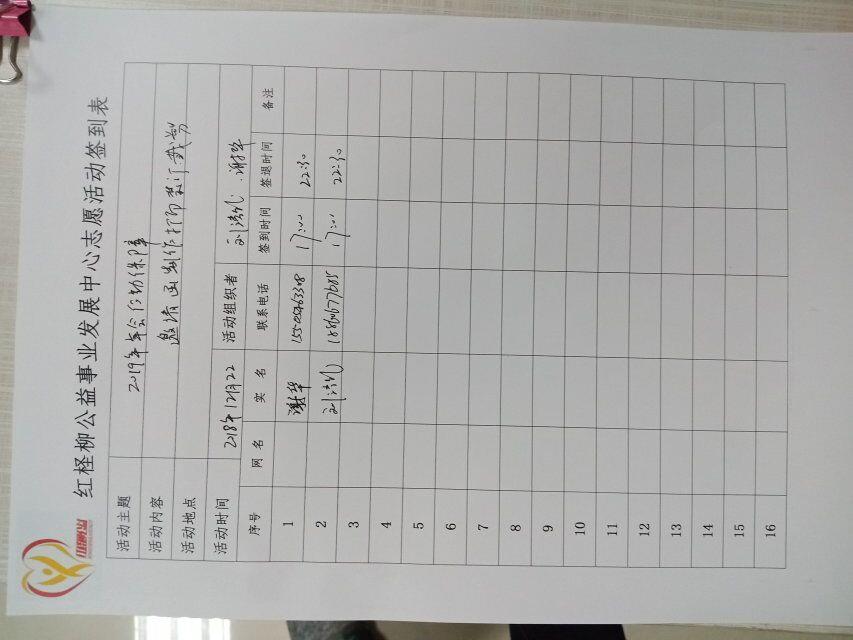 红柽柳公益事业发展中心志愿活动签到表
活动主题 2019年年会活动保障
活动内容 邀请函制作打印装订裁剪
活动地点
活动时间 2018年12月22 活动组织者
序号 网 名 实 名 联系电话 签到时间 签退时间 备注
1 谢华 17:00 22:30
2 17:00 22:30
3
4
5
6
7
8
9
10
11
12
13
14
15
16